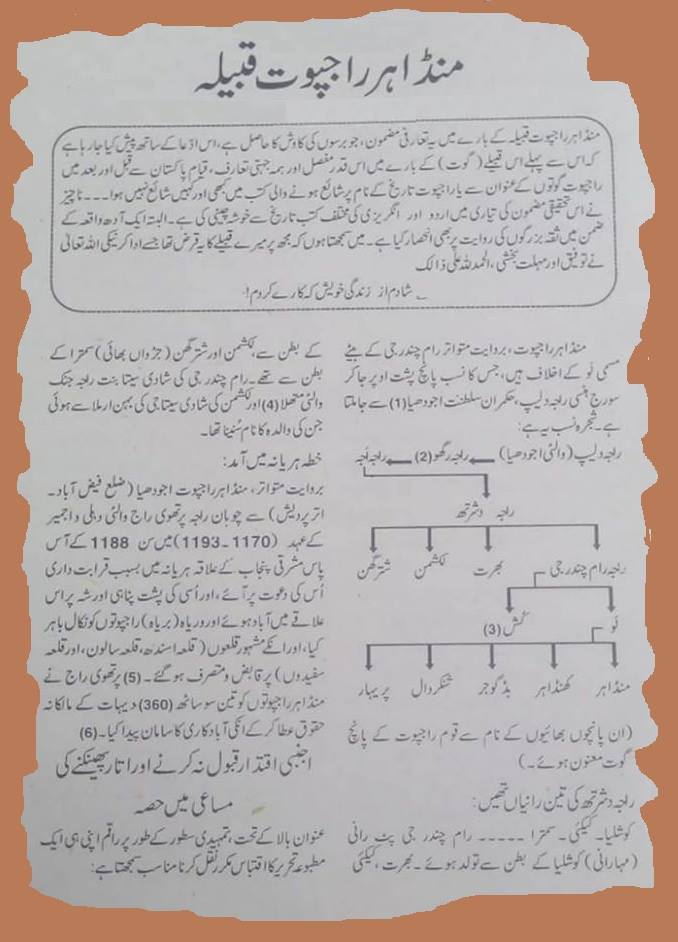 منڈاہر راجپوت قبیلہ
منڈاہر راجپوت قبیلہ کے بارے میں یہ تعارفی مضمون، جو برسوں کی کاوش کا حاصل ہے، اس ادّعا کے ساتھ پیش کیا جا رہا ہے
کہ اس سے پہلے اس قبیلے (گوت) کے بارے میں اس قدر مفصل اور ہمہ جہتی تعارف، قیام پاکستان سے قبل اور بعد میں
راجپوت گوتوں کے عنوان سے یا راجپوت تاریخ کے نام پر شائع ہونے والی کتب میں کبھی اور کہیں شائع نہیں ہوا۔۔۔ ناچیز
نے اس تحقیقی مضمون کی تیاری میں اردو اور انگریزی کی مختلف کتب تاریخ سے خوشہ چینی کی ہے۔ البتہ ایک آدھ واقعہ کے
ضمن میں ثقہ بزرگوں کی روایت پر بھی انحصار کیا ہے۔ میں سمجھتا ہوں کہ مجھ پر میرے قبیلے کا یہ فرض تھا جسے ادا کرنیکی اللہ تعالیٰ
نے توفیق اور مہلت بخشی، الحمد للہ علیٰ ذالک
؎ شادم از زندگی خویش کہ کارے کردم!
منڈاہر راجپوت، بروایت متواتر رام چندر جی کے بیٹے
مسمی لَو کے اخلاف ہیں، جس کا نسب پانچ پشت اوپر جا کر
سورج بنسی راجہ دلیپ، حکمران سلطنت اجودھیا (1) سے جا ملتا
ہے۔ شجرہ نسب یہ ہے:
راجہ دلیپ (والئی اجودھیا) راجہ رگھو (2) راجہ اجہ
راجہ دشرتھ
راجہ رام چندر جی بھرت لکشمن شترگھن
لَو کُش (3)
منڈاہر کھنڈاہر بڈگوجر شنکردال پریہار
(ان پانچوں بھائیوں کے نام سے قوم راجپوت کے پانچ
گوت معنون ہوئے۔)
راجہ دشرتھ کی تین رانیاں تھیں:
کوشلیا۔ کیکئی۔ سمترا ۔۔۔۔۔ رام چندر جی پٹ رانی
(مہارانی) کوشلیا کے بطن سے تولد ہوئے۔ بھرت، کیکئی
کے بطن سے، لکشمن اور شترگھن (جڑواں بھائی) سمترا کے
بطن سے تھے۔ رام چندر جی کی شادی سیتا بنت راجہ جنک
والئی متھلا (4) اور لکشمن کی شادی سیتا جی کی بہن ارملا سے ہوئی
جن کی والدہ کا نام سُنینا تھا۔
خطہ ہریانہ میں آمد:
بروایت متواتر، منڈاہر راجپوت اجودھیا (ضلع فیض آباد۔
اتر پردیش) سے چوہان راجہ پرتھوی راج والئی دہلی و اجمیر
کے عہد (1170۔1193) میں سن 1188 کے آس
پاس مشرقی پنجاب کے علاقہ ہریانہ میں بسبب قرابت داری
اُس کی دعوت پر آئے، اور اُسی کی پشت پناہی اور شہ پر اس
علاقے میں آباد ہوئے اور ورِیاہ (بریاہ) راجپوتوں کو نکال باہر
کیا، اور انکے مشہور قلعوں (قلعہ اسندھ، قلعہ سالون، اور قلعہ
سفیدوں) پر قابض و متصرف ہو گئے۔ (5) پرتھوی راج نے
منڈاہر راجپوتوں کو تین سو ساٹھ (360) دیہات کے مالکانہ
حقوق عطا کر کے انکی آباد کاری کا سامان پیدا کیا۔ (6)
اجنبی اقتدار قبول نہ کرنے اور اتار پھینکنے کی
مساعی میں حصہ
عنوان بالا کے تحت، تمہیدی سطور کے طور پر راقم اپنی ہی ایک
مطبوعہ تحریر کا اقتباس مکرر نقل کرنا مناسب سمجھتا ہے: